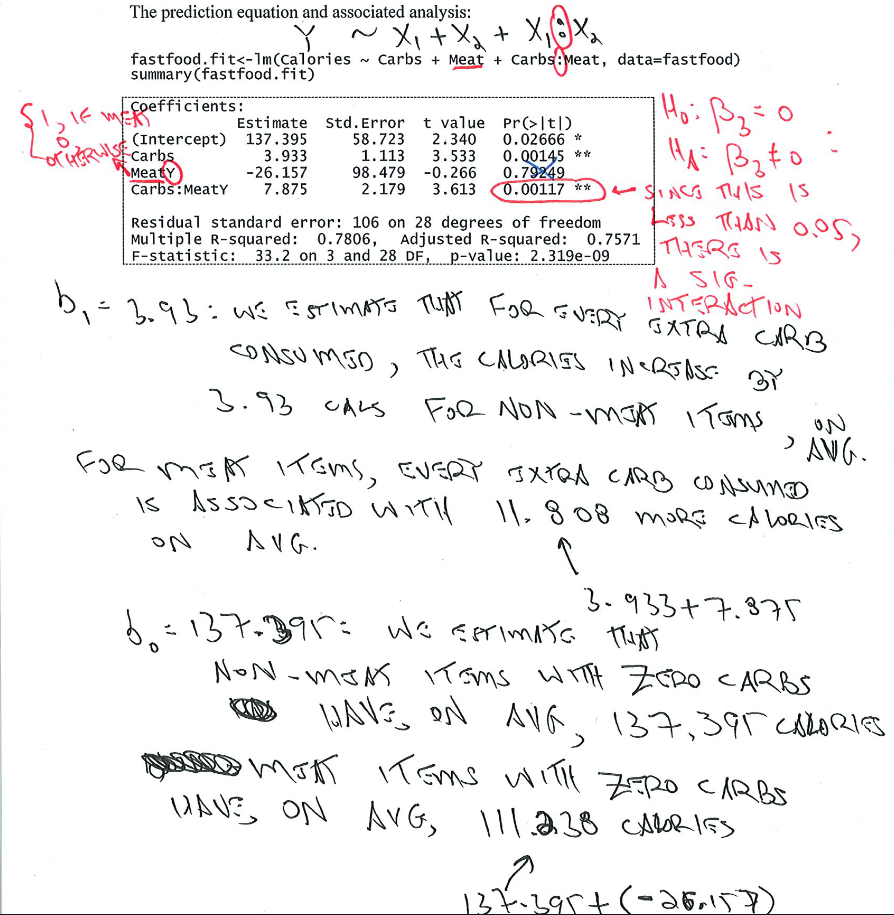 The prediction equation and associated analysis:
Y ~ X₁ + X₂ + X₁:X₂
fastfood.fit<-lm(Calories ~ Carbs + Meat + Carbs:Meat, data=fastfood)
summary(fastfood.fit)
Coefficients:
Estimate Std.Error t value Pr(>|t|)
(Intercept) 137.395 58.723 2.340 0.02666 *
Carbs 3.933 1.113 3.533 0.00145 **
MeatY -26.157 98.479 -0.266 0.79249
Carbs:MeatY 7.875 2.179 3.613 0.00117 **
Residual standard error: 106 on 28 degrees of freedom
Multiple R-squared: 0.7806, Adjusted R-squared: 0.7571
F-statistic: 33.2 on 3 and 28 DF, p-value: 2.319e-09
{ 1, IF MEAT
0
OTHERWISE
H₀: β₃ = 0
Hₐ: β₃ ≠ 0
SINCE THIS IS
LESS THAN 0.05,
THERE IS
A SIG-
INTERACTION
b₁ = 3.93: WE ESTIMATE THAT FOR EVERY EXTRA CARB
CONSUMED, THE CALORIES INCREASE BY
3.93 CALS FOR NON-MEAT ITEMS, ON
AVG.
FOR MEAT ITEMS, EVERY EXTRA CARB CONSUMED
IS ASSOCIATED WITH 11.808 MORE CALORIES
ON AVG.
↑
3.933+7.875
b₀ = 137.395: WE ESTIMATE THAT
NON-MEAT ITEMS WITH ZERO CARBS
HAVE, ON AVG, 137.395 CALORIES
MEAT ITEMS WITH ZERO CARBS
HAVE, ON AVG, 111.238 CALORIES
137.395+(-26.157)